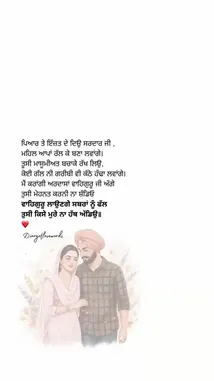 ਪਿਆਰ ਤੇ ਇੱਜ਼ਤ ਦੇ ਦਿਉ ਸਰਦਾਰ ਜੀ ,
ਮਹਿਲ ਆਪਾਂ ਰੱਲ ਕੇ ਬਣਾ ਲਵਾਂਗੇ।
ਤੁਸੀ ਮਾਸੂਮੀਅਤ ਬਚਾਕੇ ਰੱਖ ਲਿਉ,
ਕੋਈ ਗੱਲ ਨੀ ਗਰੀਬੀ ਵੀ ਕੱਠੇ ਹੰਢਾ ਲਵਾਂਗੇ।
ਮੈਂ ਕਰਾਂਗੀ ਅਰਦਾਸਾਂ ਵਾਹਿਗੁਰੂ ਜੀ ਅੱਗੇ
ਤੁਸੀ ਮੇਹਨਤ ਕਰਨੀ ਨਾ ਛੱਡਿਓ
ਵਾਹਿਗੁਰੂ ਲਾਉਣਗੇ ਸਬਰਾਂ ਨੂੰ ਫੱਲ
ਤੁਸੀ ਕਿਸੇ ਮੂਰੇ ਨਾ ਹੱਥ ਅੱਡਿਉ॥